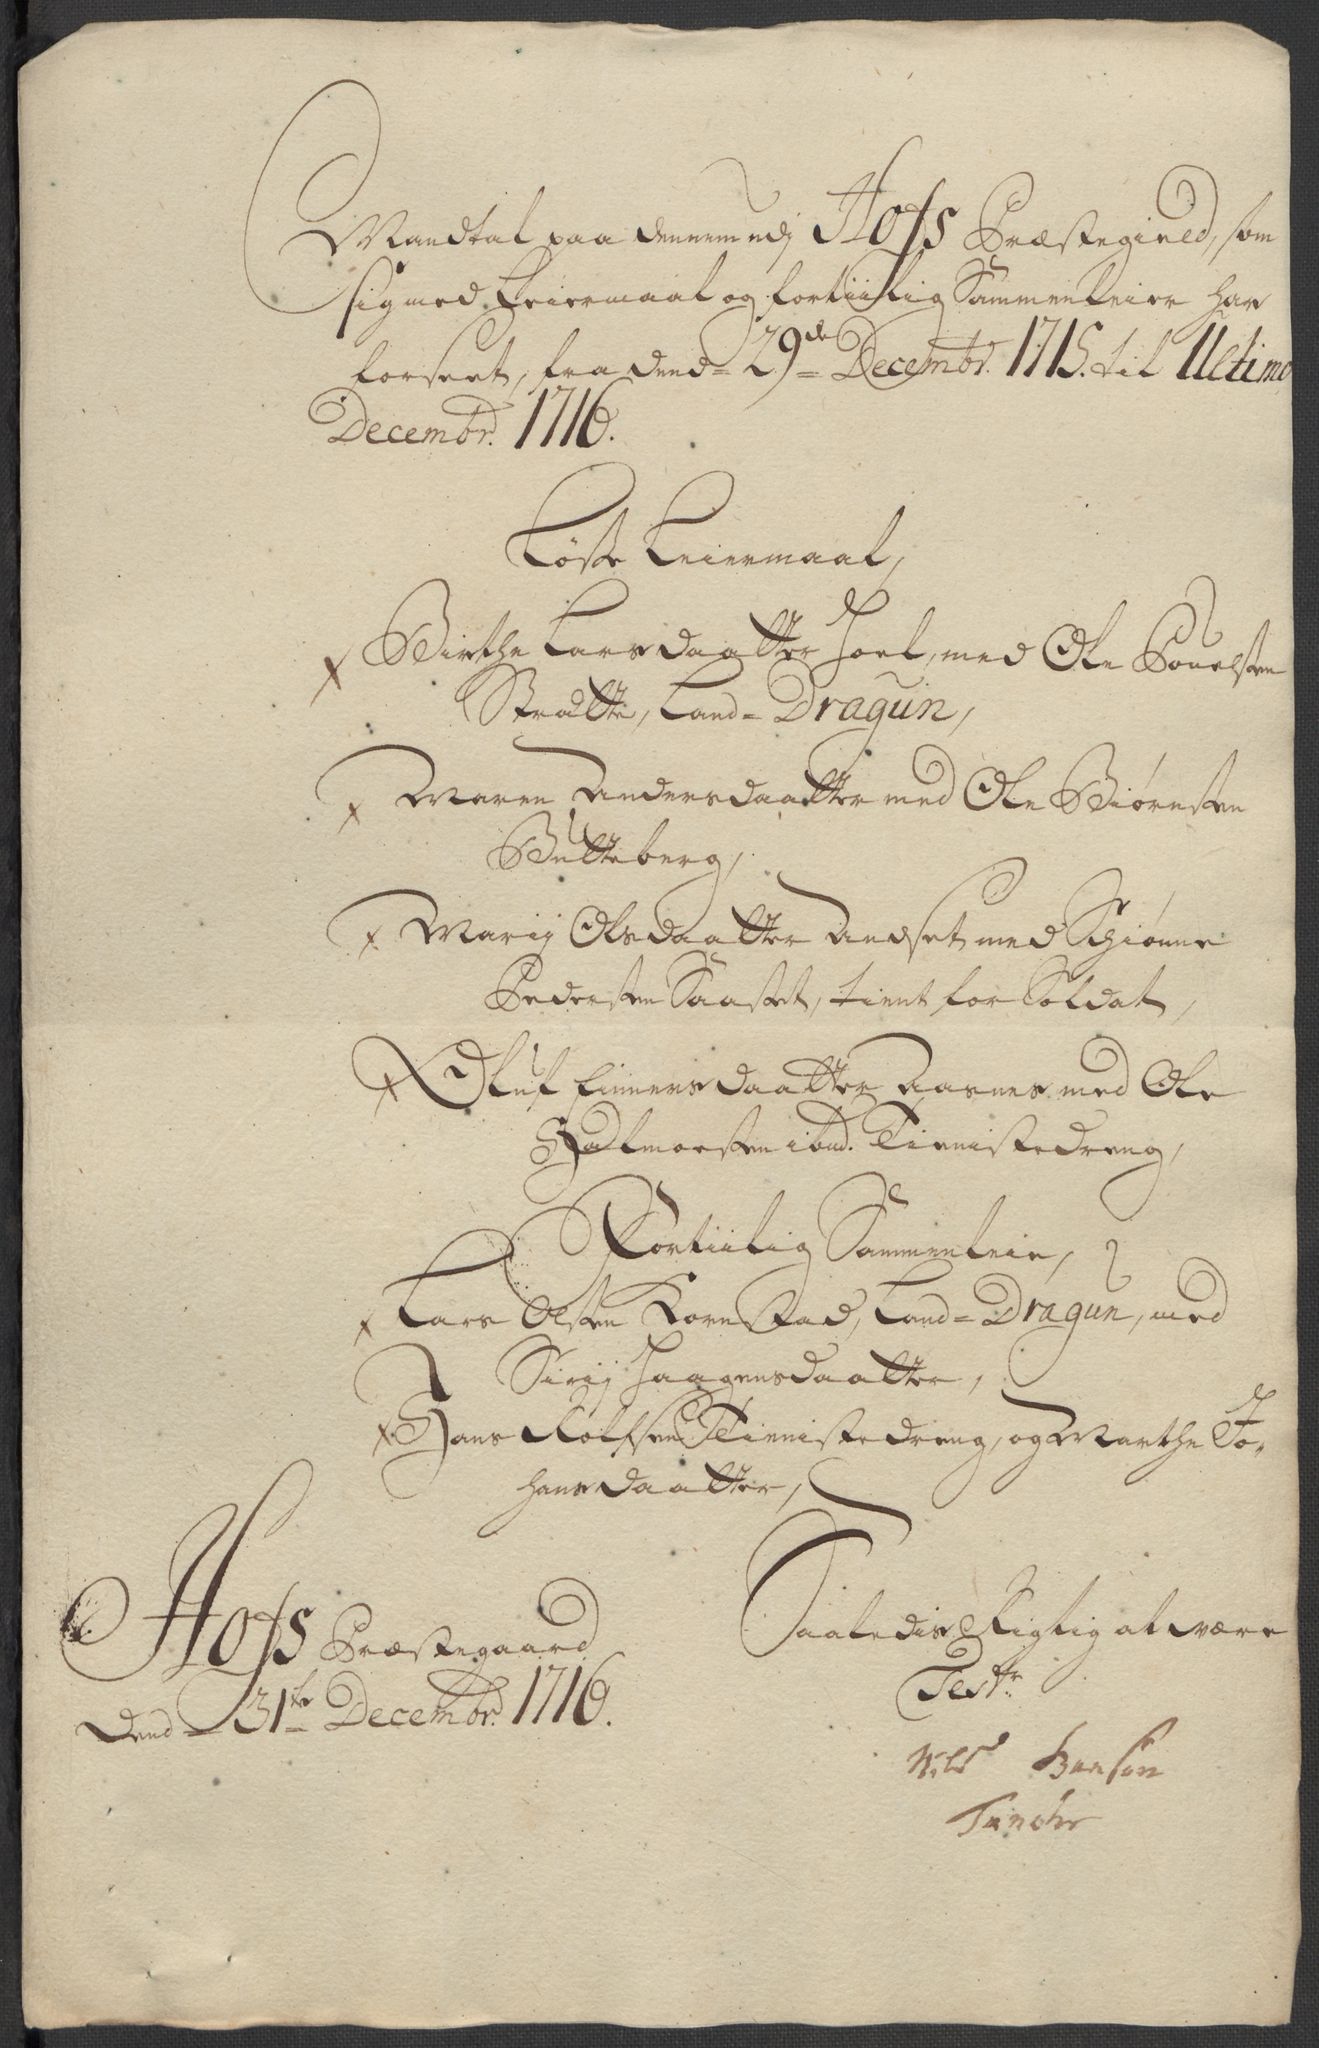 Mandtal paa dennem udj Hofs Præstegield, som
sig med Leiermaal og fortiilig Sammenleie har
forseet, fra dend 29de Decembr. 1715. til Ultimo
Decembr. 1716.
Løste Leiermaal,
x Birthe Larsdaatter Hoel, med Ole Pouelsen
Land-Dragun,
x Maren Andersdaatter med Ole Biørnsen
Butteberg,
x Marij Olsdaatter med
Pedersen Saastet, tient for Soldat,
x Oluf Finnersdaatter Aasnes med Ole
Halmorsen ibid. Tienistedreng,
Fortiilig Sammenleie,
x Lars Olsen Kornstad, Land-Dragun, med
Sirij Haagensdaatter,
x Hans Rolfsen Tienistedreng, og Marthe Jo-
hansdaatter,
Hofs Præstegaard
dend 31te Decembr. 1716.
Saaledis Rigtig at være
Test.